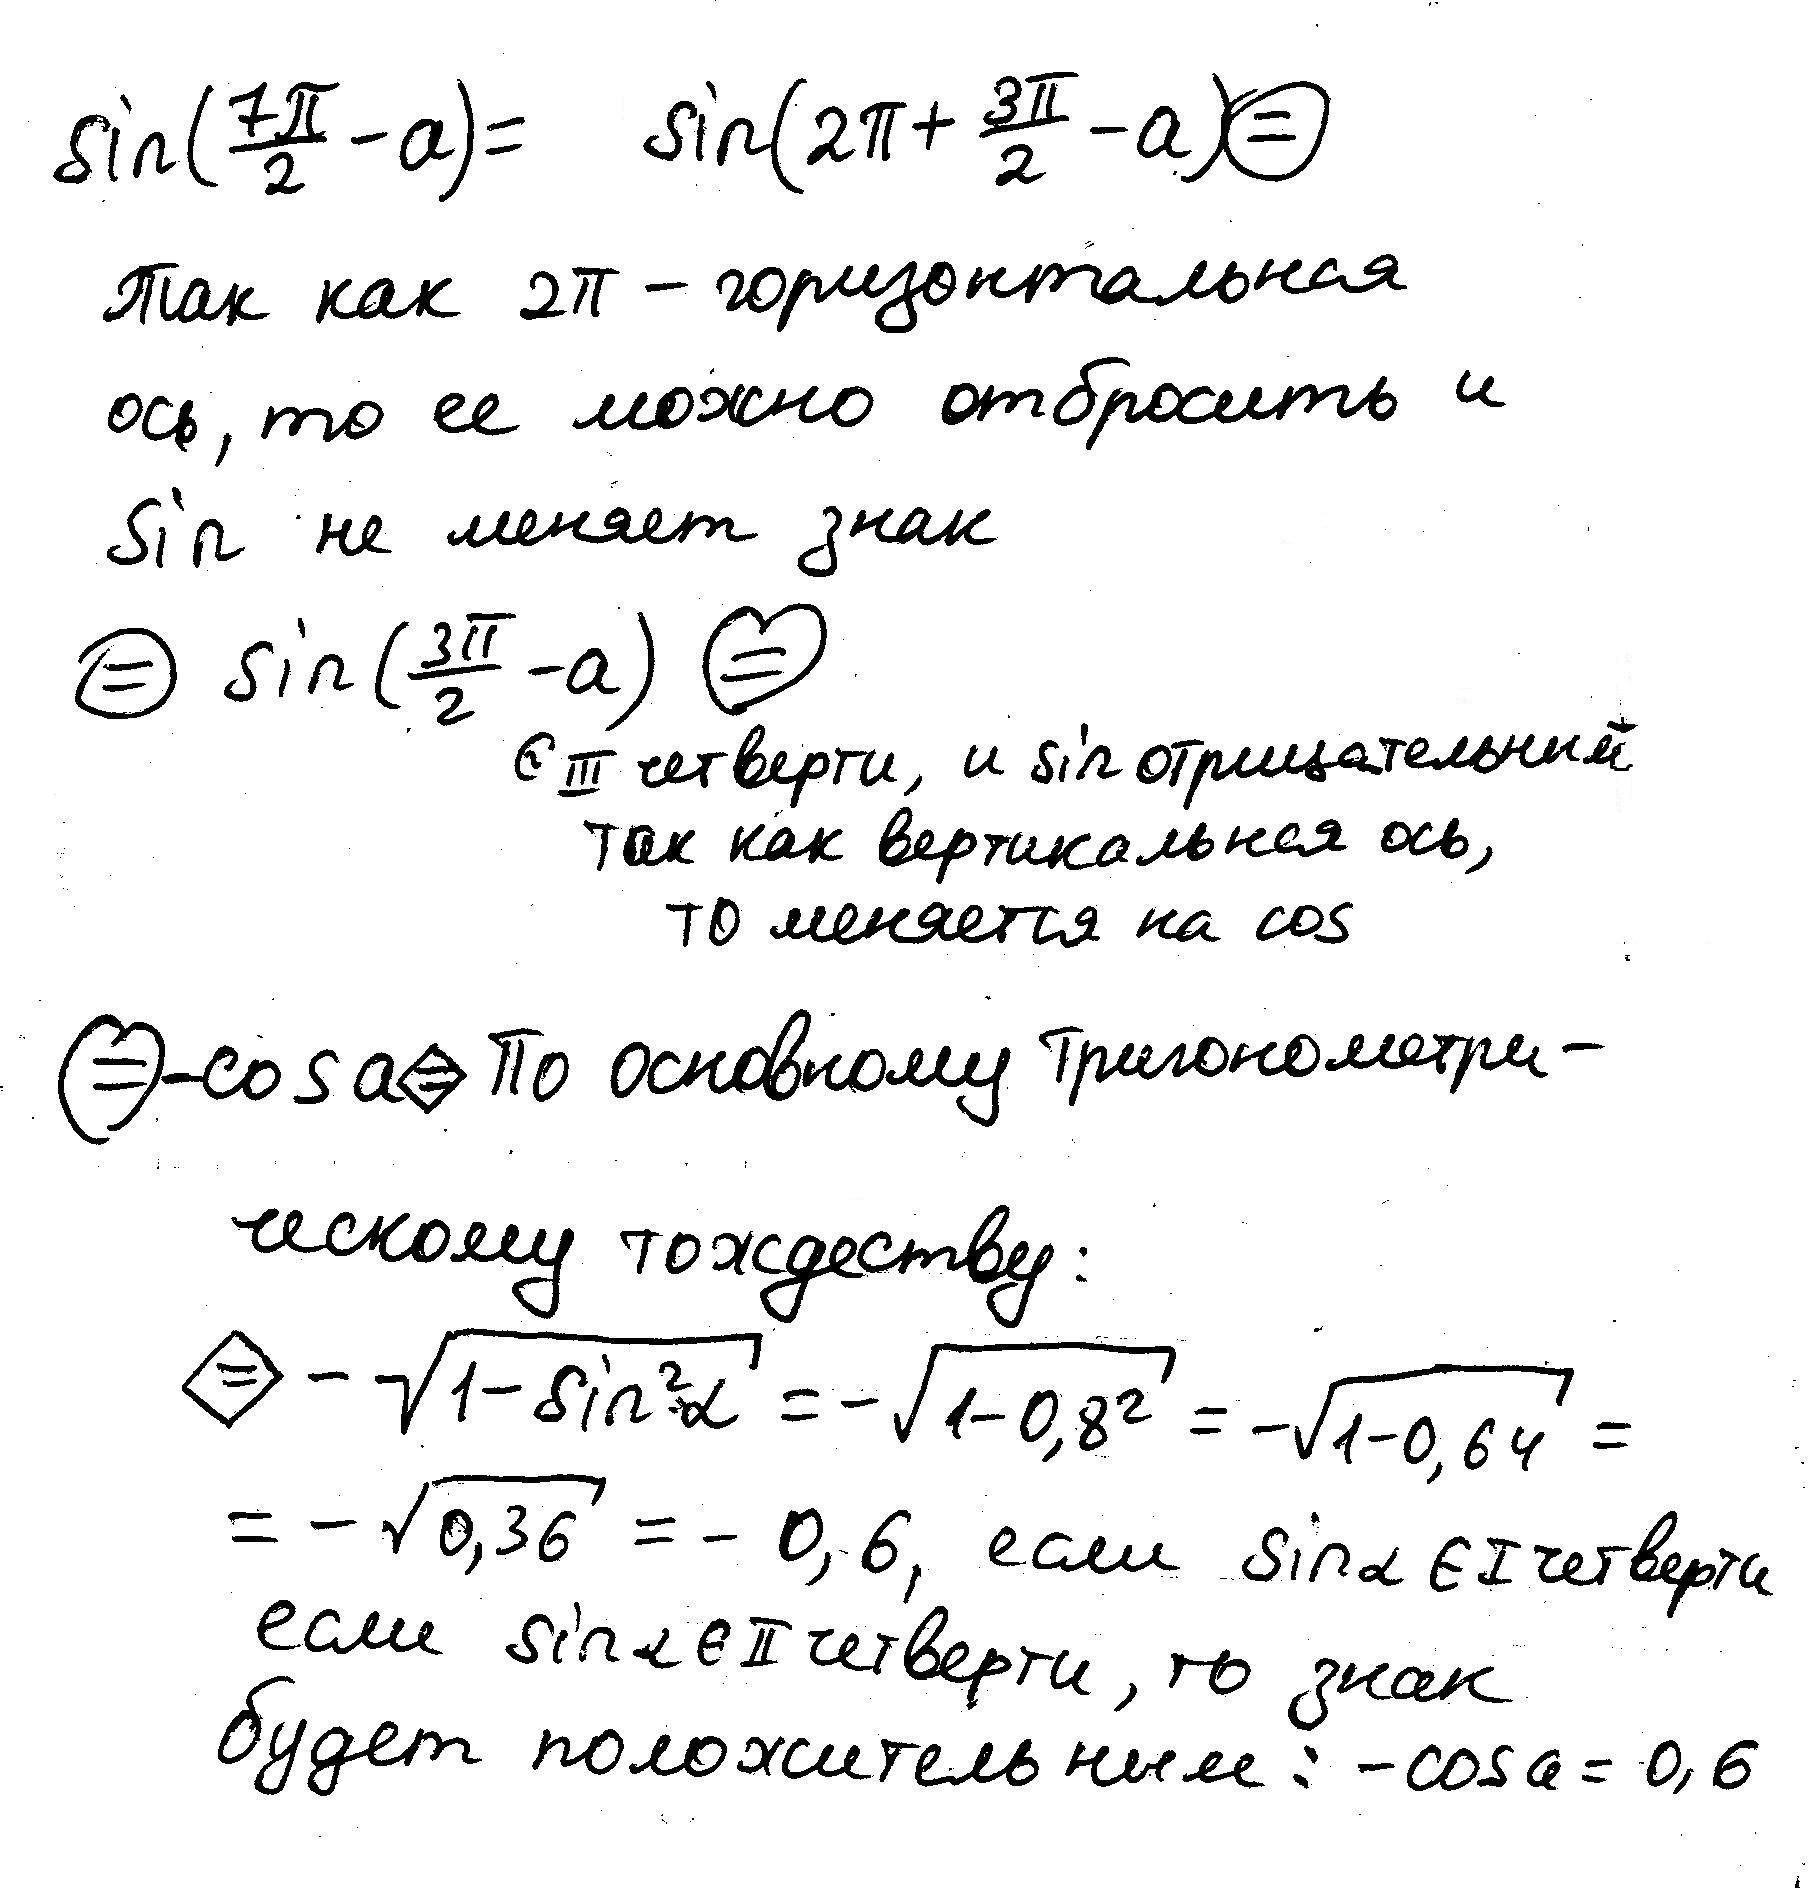 sin(7π/2 - a) = sin(2π + 3π/2 - a) =
так как 2π - горизонтальная
ось, то ее можно отбросить и
sin не меняет знак
= sin(3π/2 - a) =
∈ III четверти, и sin отрицательный
так как вертикальная ось,
то меняется на cos
= -cos a = По основному тригонометри-
ческому тождеству:
= - √(1 - sin²α) = - √(1 - 0,8²) = - √(1 - 0,64) =
= - √0,36 = - 0,6, если sin α ∈ I четверти
если sin α ∈ II четверти, то знак
будет положительным: -cos a = 0,6